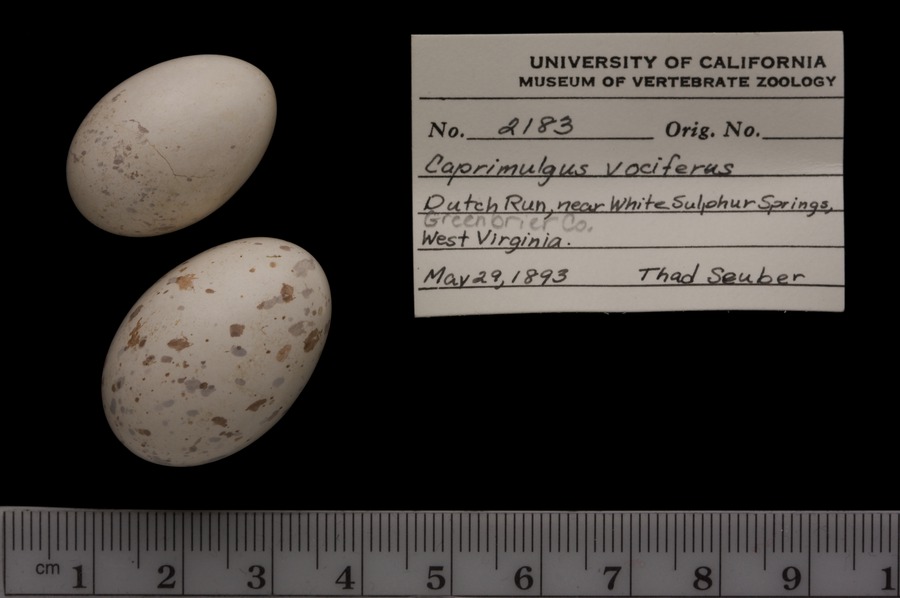 UNIVERSITY OF CALIFORNIA
MUSEUM OF VERTEBRATE ZOOLOGY
No. 2183 Orig. No.
Caprimulgus vociferus
Dutch Run, near White Sulphur Springs,
Greenbrier Co.
West Virginia.
May 29, 1893 Thad Seuber
cm 1 2 3 4 5 6 7 8 9 1